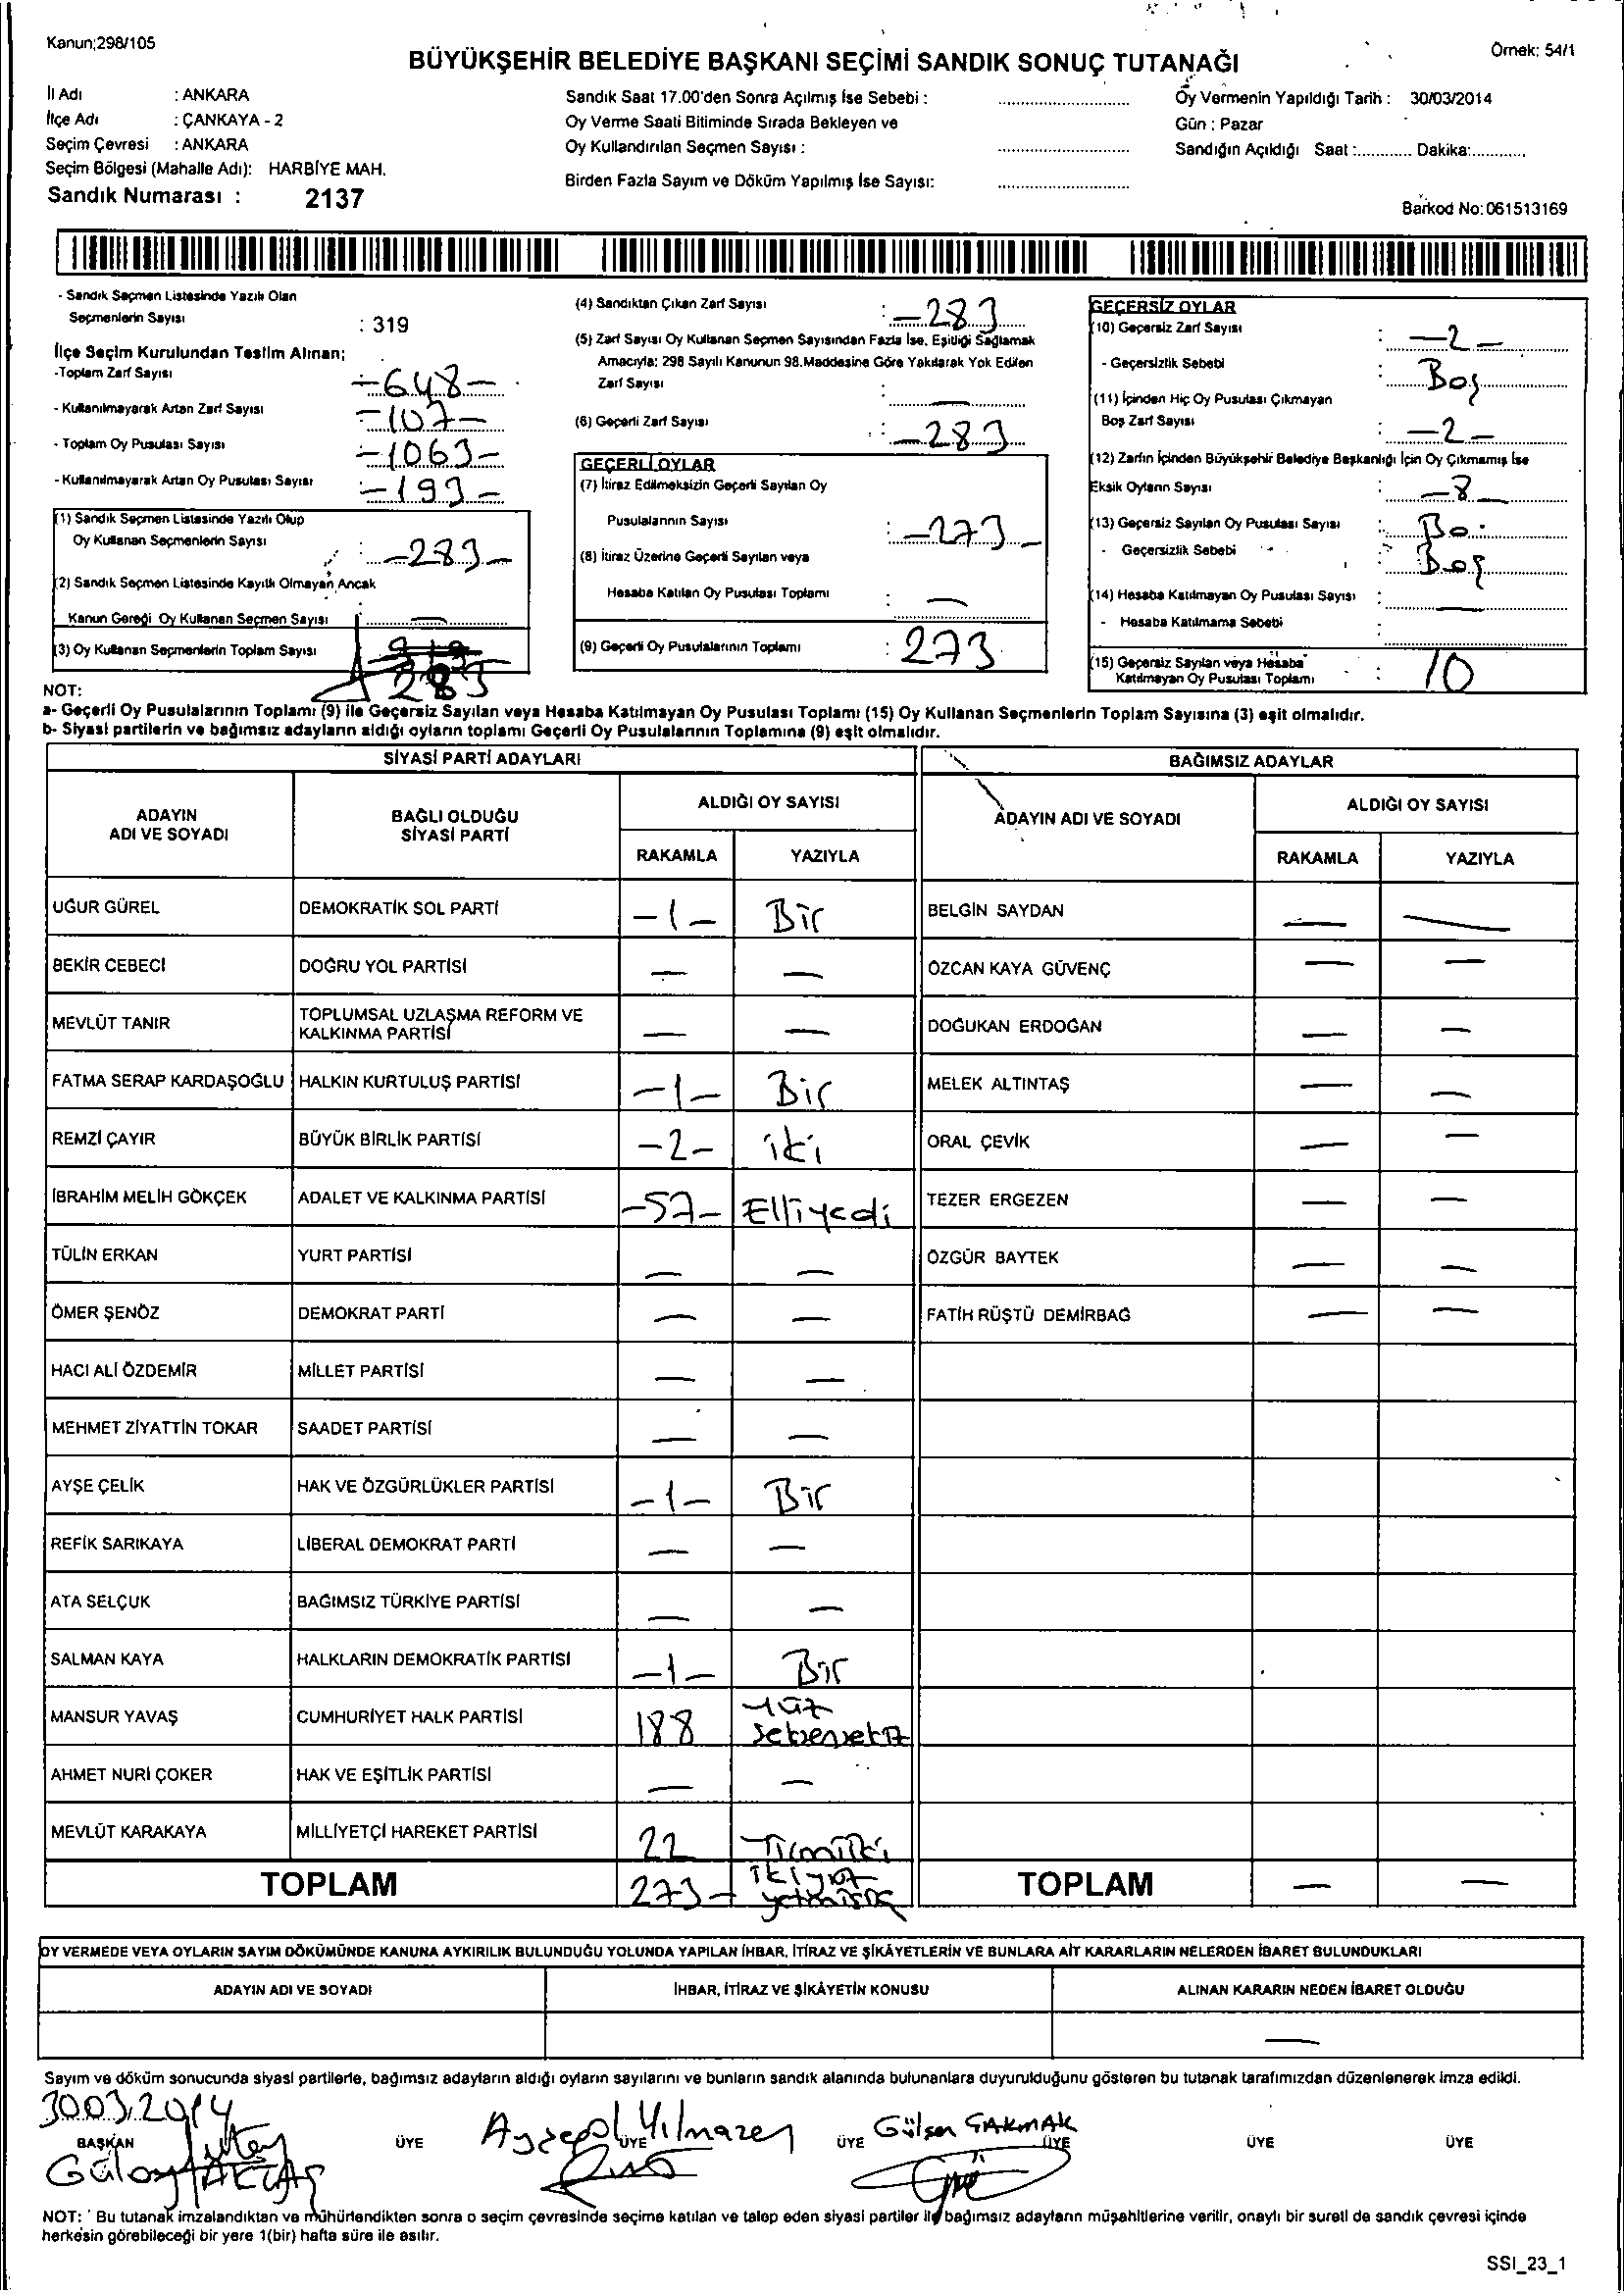 Kanun;298/105
Örnek: 54/1
BÜYÜKŞEHİR BELEDİYE BAŞKANI SEÇİMİ SANDIK SONUÇ TUTANAĞI
İl Adı : ANKARA
İlçe Adı : ÇANKAYA - 2
Seçim Çevresi : ANKARA
Seçim Bölgesi (Mahalle Adı): HARBİYE MAH.
Sandık Numarası : 2137
Sandık Saat 17.00'den Sonra Açılmış İse Sebebi :
Oy Verme Saati Bitiminde Sırada Bekleyen ve
Oy Kullandırılan Seçmen Sayısı :
Birden Fazla Sayım ve Döküm Yapılmış İse Sayısı:
Oy Vermenin Yapıldığı Tarih : 30/03/2014
Gün : Pazar
Sandığın Açıldığı Saat :............ Dakika:............
Barkod No:061513169
- Sandık Seçmen Listesinde Yazılı Olan
Seçmenlerin Sayısı : 319
İlçe Seçim Kurulundan Teslim Alınan;
-Toplam Zarf Sayısı : -648-
- Kullanılmayarak Artan Zarf Sayısı : -107-
- Toplam Oy Pusulası Sayısı : -1063-
- Kullanılmayarak Artan Oy Pusulası Sayısı : -193-
(1) Sandık Seçmen Listesinde Yazılı Olup
Oy Kullanan Seçmenlerin Sayısı : -283-
(2) Sandık Seçmen Listesinde Kayıtlı Olmayan Ancak
Kanun Gereği Oy Kullanan Seçmen Sayısı : —
(3) Oy Kullanan Seçmenlerin Toplam Sayısı 283
(4) Sandıktan Çıkan Zarf Sayısı : -283
(5) Zarf Sayısı Oy Kullanan Seçmen Sayısından Fazla İse, Eşitliği Sağlamak
Amacıyla; 298 Sayılı Kanunun 98.Maddesine Göre Yakılarak Yok Edilen
Zarf Sayısı : —
(6) Geçerli Zarf Sayısı : -283
GEÇERLİ OYLAR
(7) İtiraz Edilmeksizin Geçerli Sayılan Oy
Pusulalarının Sayısı : -273-
(8) İtiraz Üzerine Geçerli Sayılan veya
Hesaba Katılan Oy Pusulası Toplamı : —
(9) Geçerli Oy Pusulalarının Toplamı : 273
GEÇERSİZ OYLAR
(10) Geçersiz Zarf Sayısı : -2-
- Geçersizlik Sebebi : Boş
(11) İçinden Hiç Oy Pusulası Çıkmayan
Boş Zarf Sayısı : -2-
(12) Zarfın İçinden Büyükşehir Belediye Başkanlığı İçin Oy Çıkmamış İse
Eksik Oyların Sayısı : -8-
(13) Geçersiz Sayılan Oy Pusulası Sayısı
- Geçersizlik Sebebi : Boş
(14) Hesaba Katılmayan Oy Pusulası Sayısı : —
- Hesaba Katılmama Sebebi :
(15) Geçersiz Sayılan veya Hesaba
Katılmayan Oy Pusulası Toplamı : 10
NOT:
a- Geçerli Oy Pusulalarının Toplamı (9) ile Geçersiz Sayılan veya Hesaba Katılmayan Oy Pusulası Toplamı (15) Oy Kullanan Seçmenlerin Toplam Sayısına (3) eşit olmalıdır.
b- Siyasi partilerin ve bağımsız adayların aldığı oyların toplamı Geçerli Oy Pusulalarının Toplamına (9) eşit olmalıdır.
SİYASİ PARTİ ADAYLARI
ADAYIN ADI VE SOYADI
BAĞLI OLDUĞU SİYASİ PARTİ
ALDIĞI OY SAYISI
RAKAMLA YAZIYLA
BAĞIMSIZ ADAYLAR
ADAYIN ADI VE SOYADI
ALDIĞI OY SAYISI
RAKAMLA YAZIYLA
UĞUR GÜREL DEMOKRATİK SOL PARTİ -1- Bir BELGİN SAYDAN — —
BEKİR CEBECİ DOĞRU YOL PARTİSİ — — ÖZCAN KAYA GÜVENÇ — —
MEVLÜT TANIR TOPLUMSAL UZLAŞMA REFORM VE KALKINMA PARTİSİ — — DOĞUKAN ERDOĞAN — —
FATMA SERAP KARDAŞOĞLU HALKIN KURTULUŞ PARTİSİ -1- Bir MELEK ALTINTAŞ — —
REMZİ ÇAYIR BÜYÜK BİRLİK PARTİSİ -2- iki ORAL ÇEVİK — —
İBRAHİM MELİH GÖKÇEK ADALET VE KALKINMA PARTİSİ -57- Elliyedi TEZER ERGEZEN — —
TÜLİN ERKAN YURT PARTİSİ — — ÖZGÜR BAYTEK — —
ÖMER ŞENÖZ DEMOKRAT PARTİ — — FATİH RÜŞTÜ DEMİRBAĞ — —
HACI ALİ ÖZDEMİR MİLLET PARTİSİ — —
MEHMET ZİYATTİN TOKAR SAADET PARTİSİ — —
AYŞE ÇELİK HAK VE ÖZGÜRLÜKLER PARTİSİ -1- Bir
REFİK SARIKAYA LİBERAL DEMOKRAT PARTİ — —
ATA SELÇUK BAĞIMSIZ TÜRKİYE PARTİSİ — —
SALMAN KAYA HALKLARIN DEMOKRATİK PARTİSİ -1- Bir
MANSUR YAVAŞ CUMHURİYET HALK PARTİSİ 188 Yüz
AHMET NURİ ÇOKER HAK VE EŞİTLİK PARTİSİ — —
MEVLÜT KARAKAYA MİLLİYETÇİ HAREKET PARTİSİ 22
TOPLAM 273- ikiyüz TOPLAM — —
OY VERMEDE VEYA OYLARIN SAYIM DÖKÜMÜNDE KANUNA AYKIRILIK BULUNDUĞU YOLUNDA YAPILAN İHBAR, İTİRAZ VE ŞİKÂYETLERİN VE BUNLARA AİT KARARLARIN NELERDEN İBARET BULUNDUKLARI
ADAYIN ADI VE SOYADI İHBAR, İTİRAZ VE ŞİKÂYETİN KONUSU ALINAN KARARIN NEDEN İBARET OLDUĞU
—
Sayım ve döküm sonucunda siyasi partilerle, bağımsız adayların aldığı oyların sayılarını ve bunların sandık alanında bulunanlara duyurulduğunu gösteren bu tutanak tarafımızdan düzenlenerek imza edildi.
30.03.2014
BAŞKAN ÜYE Ayşegül Yılmazer ÜYE ÜYE Gülşen ÇAKMAK ÜYE ÜYE ÜYE
AKTAŞ
NOT: Bu tutanak imzalandıktan ve mühürlendikten sonra o seçim çevresinde seçime katılan ve talep eden siyasi partiler ile bağımsız adayların müşahitlerine verilir, onaylı bir sureti de sandık çevresi içinde
herkesin görebileceği bir yere 1(bir) hafta süre ile asılır.
SSI_23_1